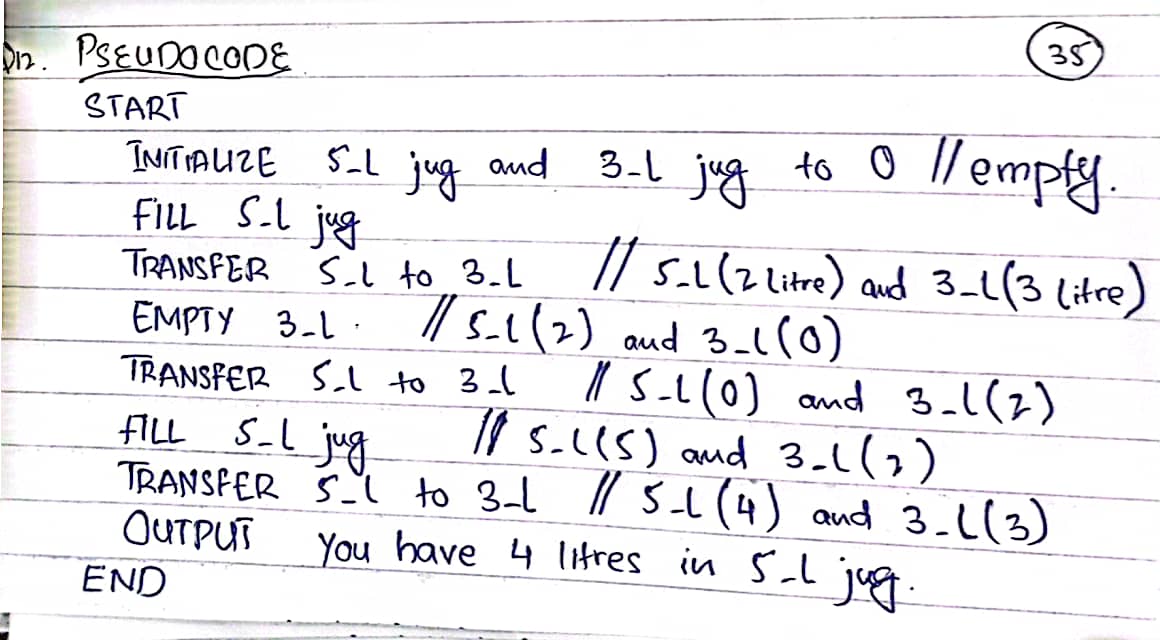 Q12. PSEUDOCODE 35
START
INITIALIZE 5_L jug and 3_L jug to 0 // empty.
FILL 5_L jug
TRANSFER 5_L to 3_L // 5_L (2 Litre) and 3_L (3 Litre)
EMPTY 3_L. // 5_L (2) and 3_L (0)
TRANSFER 5_L to 3_L // 5_L (0) and 3_L (2)
FILL 5_L jug // 5_L (5) and 3_L (2)
TRANSFER 5_L to 3_L // 5_L (4) and 3_L (3)
OUTPUT You have 4 litres in 5_L jug.
END